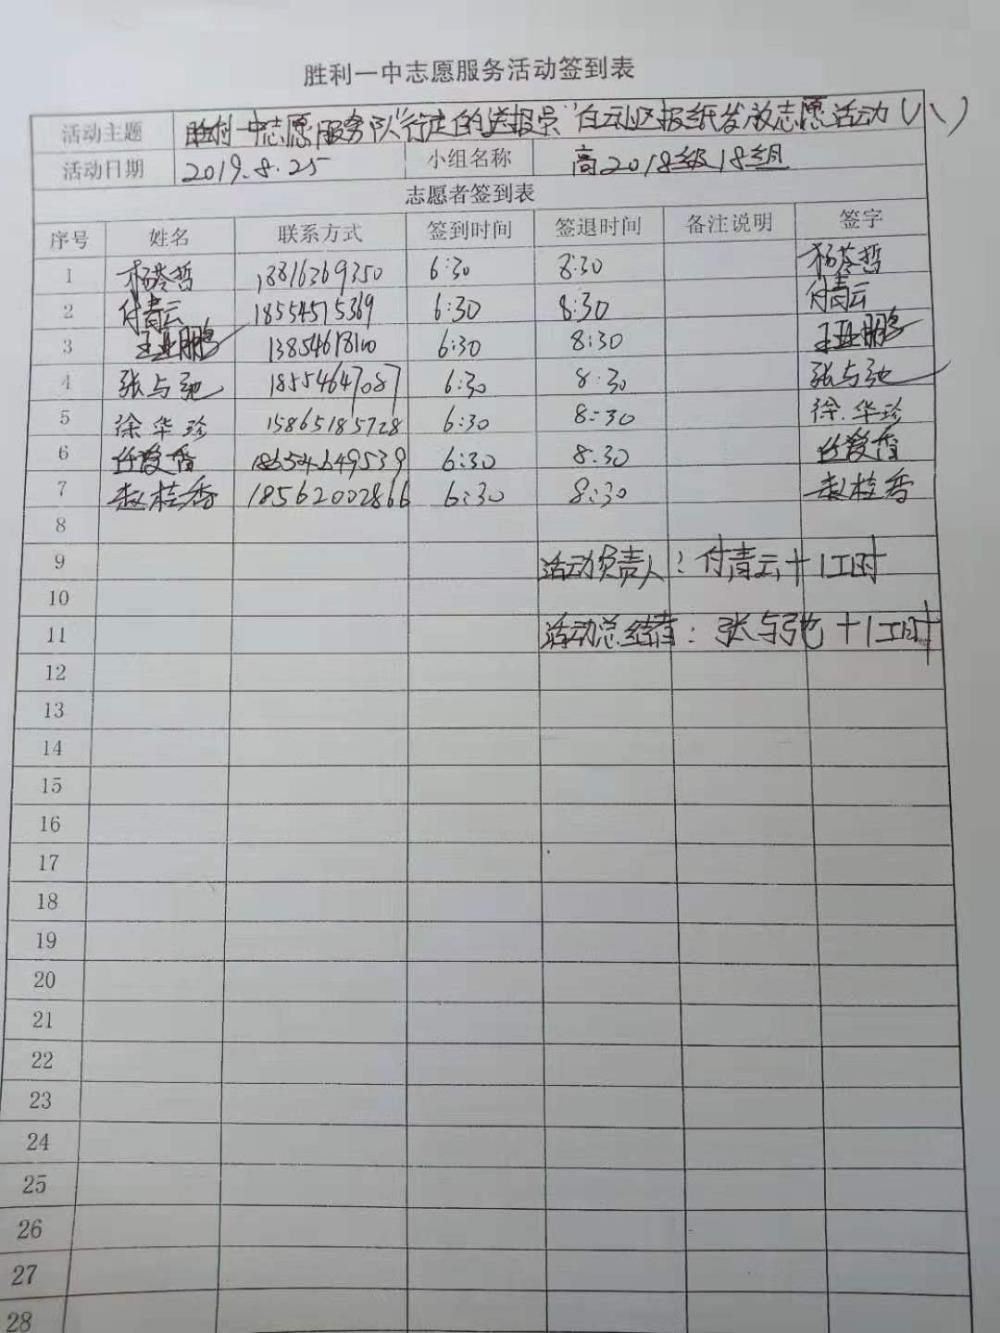 胜利一中志愿服务活动签到表
活动主题 胜利一中志愿服务队"行走的送报员"白云社区报纸发放志愿活动(八)
活动日期 2019.8.25 小组名称 高2018级18组
志愿者签到表
序号 姓名 联系方式 签到时间 签退时间 备注说明 签字
1 杨苓哲 6:30 8:30 杨苓哲
2 付青云 18554515369 6:30 8:30 付青云
3 王亚鹏 13854618100 6:30 8:30 王亚鹏
4 张与弛 18554647087 6:30 8:30 张与弛
5 徐华珍 15865185728 6:30 8:30 徐华珍
6 任爱香 18654649539 6:30 8:30 任爱香
7 赵桂香 18562002866 6:30 8:30 赵桂香
8
9 活动负责人:付青云+1工时
10
11 活动总结者:张与弛+1工时
12
13
14
15
16
17
18
19
20
21
22
23
24
25
26
27
28